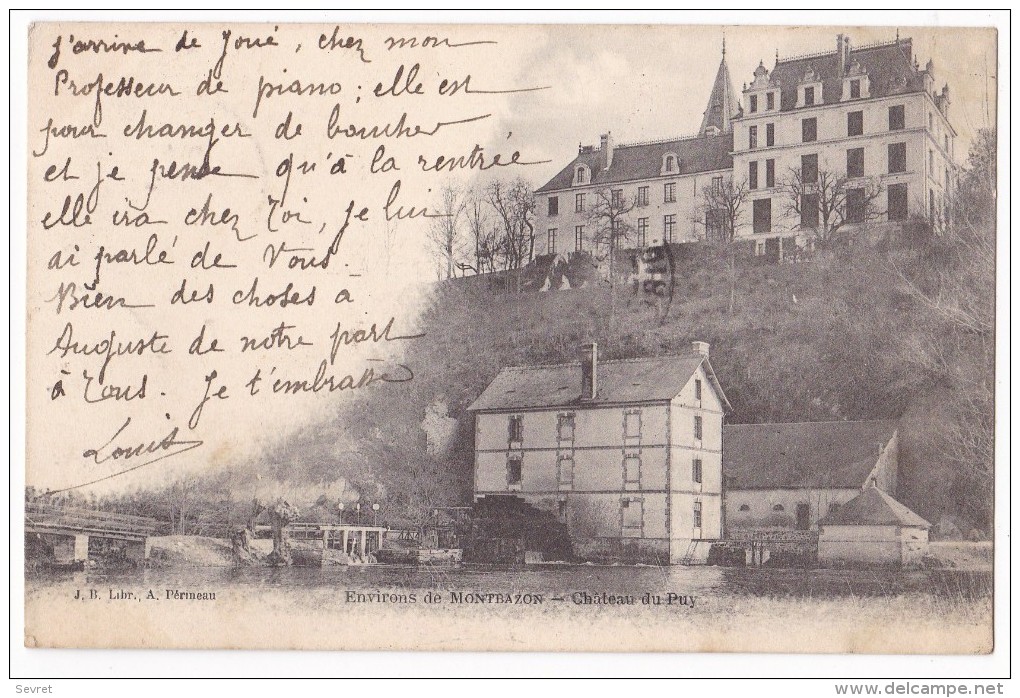 J'arrive de Joué, chez mon
Professeur de piano ; elle est
pour changer de boucher
et je pense qu'à la rentrée
elle ira chez Toi, Je lui
ai parlé de Vous.
Bien des choses à
Auguste de notre part
à Tous. Je t'embrasse
Louis
J. B. Libr., A. Périneau
Environs de MONTBAZON — Château du Puy
Sevret
www.delcampe.net